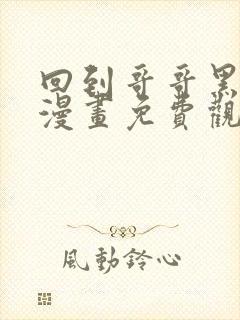 回到哥哥黑
漫畫免費觀
風動鈴心